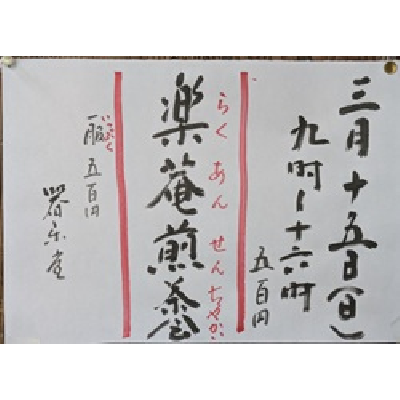 三月十五日(日)
九時〜十六時
五百円
らくあんせんちゃかい
楽菴煎茶会
いっぷく
一服五百円
器乐堂